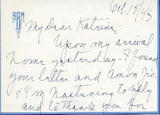 BRM
Oct. 15/43
My Dear Katrine,
Upon my arrival
home yesterday - I found
your letter and
& I'm hastening to reply
and to thank you for